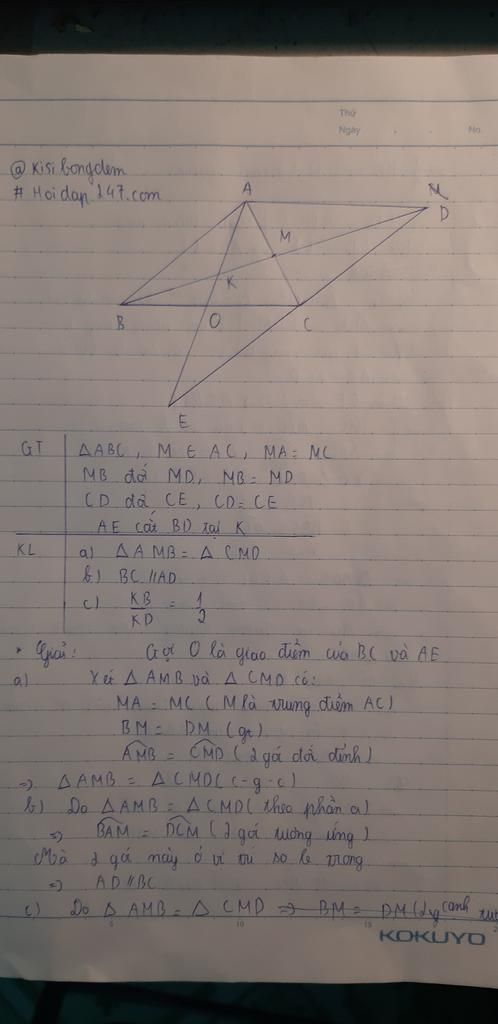 Thứ
Ngày No.
@ Kisibongdem
# Hoidap 247.com
A M
D
M
K
B O C
E
GT ΔABC, M ∈ AC, MA = MC
MB đối MD, MB = MD
CD đối CE, CD = CE
AE cắt BD tại K
KL a) ΔAMB = ΔCMD
b) BC // AD
c) KB/KD = 1/2
* Giải: Gọi O là giao điểm của BC và AE
a) Xét ΔAMB và ΔCMD có:
MA = MC (M là trung điểm AC)
BM = DM (gt)
AMB = CMD (2 góc đối đỉnh)
=> ΔAMB = ΔCMD (c-g-c)
b) Do ΔAMB = ΔCMD (theo phần a)
=> BAM = DCM (2 góc tương ứng)
Mà 2 góc này ở vị trí so le trong
=> AD // BC
c) Do ΔAMB = ΔCMD => BM = DM (2 cạnh
5 10 15
KOKUYO